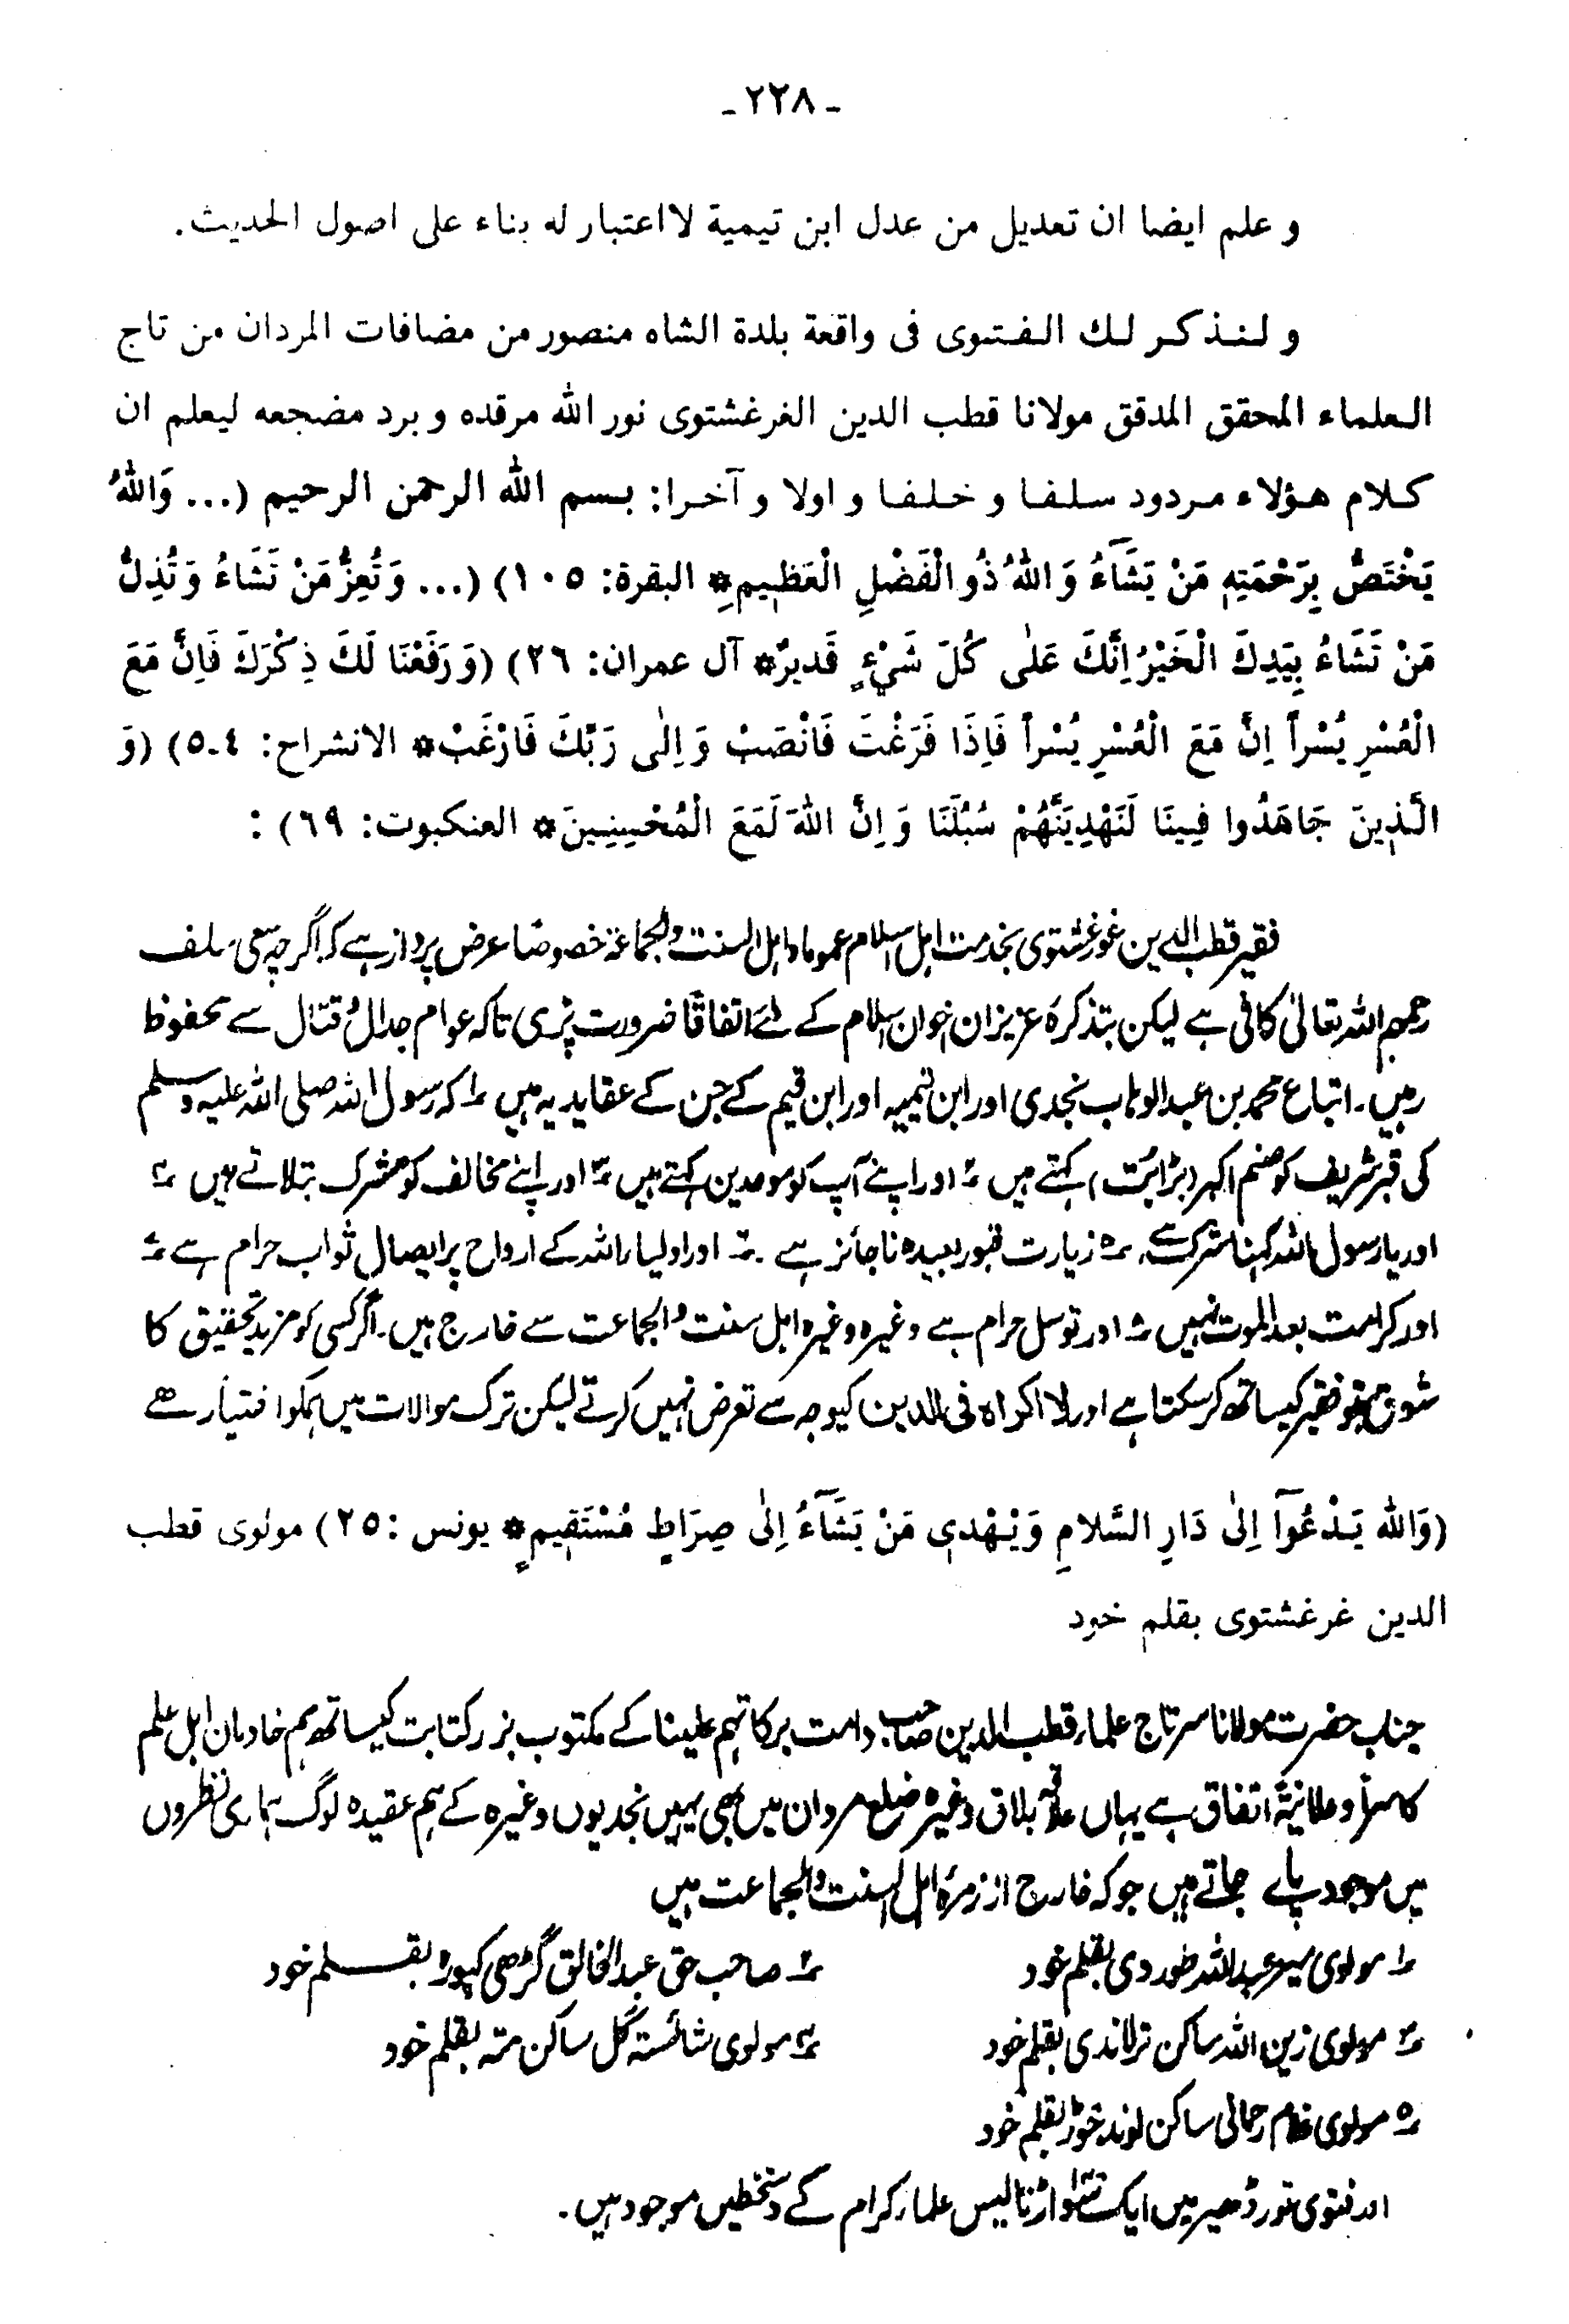 - ٢٢٨ -
و علم ايضا ان تعديل من عدل ابن تيمية لا اعتبار له بناء على اصول الحديث.
و لنذكر لك الفتوى فى واقعة بلدة الشاه منصور من مضافات المردان من تاج
العلماء المحقق المدقق مولانا قطب الدين الغرغشتوى نور الله مرقده و برد مضجعه ليعلم ان
كلام هؤلاء مردود سلفا و خلفا و اولا و آخرا: بسم الله الرحمن الرحيم (... وَاللهُ
يَخْتَصُّ بِرَحْمَتِهِ مَنْ يَشَآءُ وَ اللهُ ذُو الْفَضْلِ الْعَظِيمِ* البقرة: ١٠٥) (... وَ تُعِزُّ مَنْ تَشَاءُ وَ تُذِلُّ
مَنْ تَشَاءُ بِيَدِكَ الْخَيْرُ اِنَّكَ عَلٰى كُلّ شَيْءٍ قَديرٌ* آل عمران: ٢٦) (وَ رَفَعْنَا لَكَ ذِكْرَكَ فَاِنَّ مَعَ
الْعُسْرِ يُسْراً اِنَّ مَعَ الْعُسْرِ يُسْراً فَاِذَا فَرَغْتَ فَانْصَبْ وَ اِلٰى رَبِّكَ فَارْغَبْ* الانشراح: ٤-٥) (وَ
الَّذِينَ جَاهَدُوا فِينَا لَنَهْدِيَنَّهُمْ سُبُلَنَا وَ اِنَّ اللهَ لَمَعَ الْمُحْسِنِينَ* العنكبوت: ٦٩) :
فقیر قطب الدین غورغشتوی بخدمت اہل اسلام عموما و اہل السنت والجماعۃ خصوصًا عرض پرداز ہے کہ اگرچہ سعی سلف
رحمہم اللہ تعالیٰ کافی ہے لیکن بتذکرہ عزیزان اخوان اسلام کے لئے اتفاقًا ضرورت پڑی تاکہ عوام جدال و قتال سے محفوظ
رہیں۔ اتباع محمد بن عبد الوہاب نجدی اور ابن تیمیہ اور ابن قیم کے جن کے عقاید یہ ہیں ۱ کہ رسول اللہ صلی اللہ علیہ وسلم
کی قبر شریف کو صنم اکبر (بڑا بُت) کہتے ہیں ۲ اور اپنے آپ کو موحدین کہتے ہیں ۳ اور اپنے مخالف کو مشرک بتلاتے ہیں ۴
اور یا رسول اللہ کہنا شرک ہے۔ ۵ زیارت قبور بعیدہ ناجائز ہے۔ ۶ اور اولیاء اللہ کے ارواح پر ایصال ثواب حرام ہے ۷
اور کرامت بعد الموت نہیں ۸ اور توسل حرام ہے وغیرہ وغیرہ اہل سنت والجماعت سے خارج ہیں۔ اگر کسی کو مزید تحقیق کا
شوق ہو فقیر کیساتھ کر سکتا ہے اور لا اکراہ فی الدین کیوجہ سے تعرض نہیں کرتے لیکن ترک موالات میں ہمکو اختیار ہے
(وَالله يَدْعُوآ اِلىٰ دَارِ السَّلامِ وَيَهْدِى مَنْ يَشَآءُ اِلىٰ صِرَاطٍ مُسْتَقِيمٍ* يونس :٢٥) مولوى قطب
الدين غرغشتوى بقلم خود
جناب حضرت مولانا سرتاج علماء قطب الدین صاحب دامت برکاتہم علینا کے مکتوب بزرکتابت کیساتھ ہم خادمان اہل علم
کا سرًا و علانیۃً اتفاق ہے یہاں بلاق وغیرہ ضلع مردان میں بھی یہیں نجدیوں وغیرہ کے ہم عقیدہ لوگ ہماری نظروں
میں موجود پائے جاتے ہیں جو کہ خارج از زمرہ اہل السنت والجماعت ہیں
۱ مولوی میر عبد اللہ طوردی بقلم خود
۲ صاحب حق عبد الخالق گڑھی کپورہ بقلم خود
۳ مولوی زین اللہ ساکن ترلاندی بقلم خود
۴ مولوی شائستہ گل ساکن متہ بقلم خود
۵ مولوی غلام رحمانی ساکن لوندخوڑ بقلم خود
اور فتویٰ تورڈھیر میں ایک سو اڑتالیس علماء کرام کے دستخطیں موجود ہیں۔